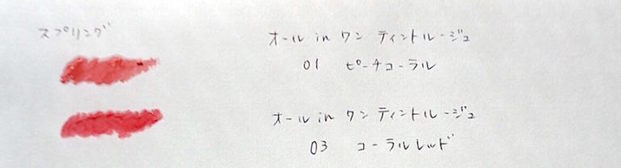 スプリング
オール in ワン ティントルージュ
01 ピーチコーラル
オール in ワン ティントルージュ
03 コーラルレッド